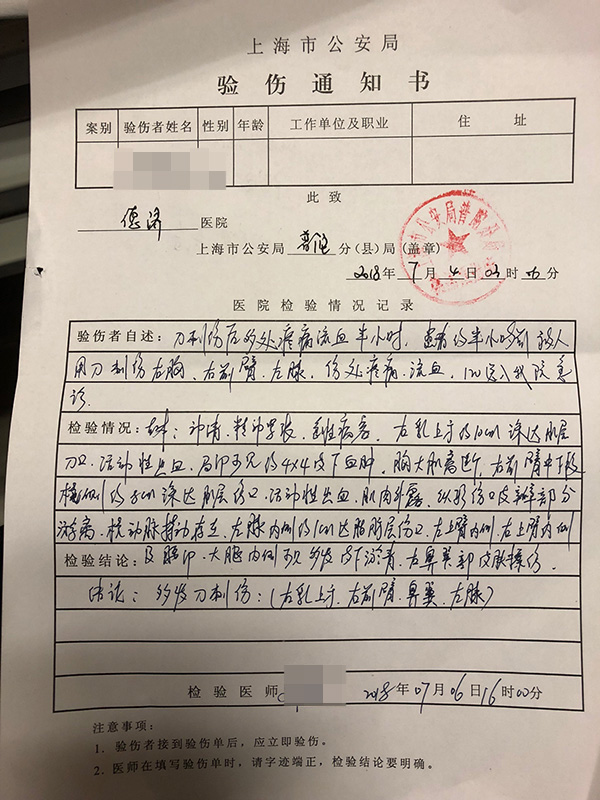 上海市公安局
验伤通知书
案别 验伤者姓名 性别 年龄 工作单位及职业 住 址
此致
德济 医院
上海市公安局 普陀 分(县)局(盖章)
2018年 7月 4日 03时 分
医院检验情况记录
验伤者自述: 刀刺伤后多处疼痛流血半小时, 患者约半小时前被人
用刀刺伤左胸、右前臂、左膝, 伤处疼痛、流血, 120送入我院急
诊.
检验情况: 神清、精神, 急性病容, 左乳上方约10cm 深达肌层
刀口, 活动性出血, 局部可见约4×4皮下血肿, 胸大肌离断, 右前臂中下段
约8cm 深达肌层伤口, 活动性出血, 肌肉外露, 伤口皮瓣部分
游离, 桡动脉搏动存在, 左膝内侧约1cm达脂肪层伤口, 左上臂内侧, 右上臂内侧
检验结论: 及腰部、大腿内侧可见多发皮下淤青, 右鼻翼部皮肤擦伤.
结论: 多发刀刺伤: (左乳上方、右前臂、鼻翼、左膝)
检验医师 2018年07月06日16时00分
注意事项:
1. 验伤者接到验伤单后,应立即验伤。
2. 医师在填写验伤单时,请字迹端正,检验结论要明确。